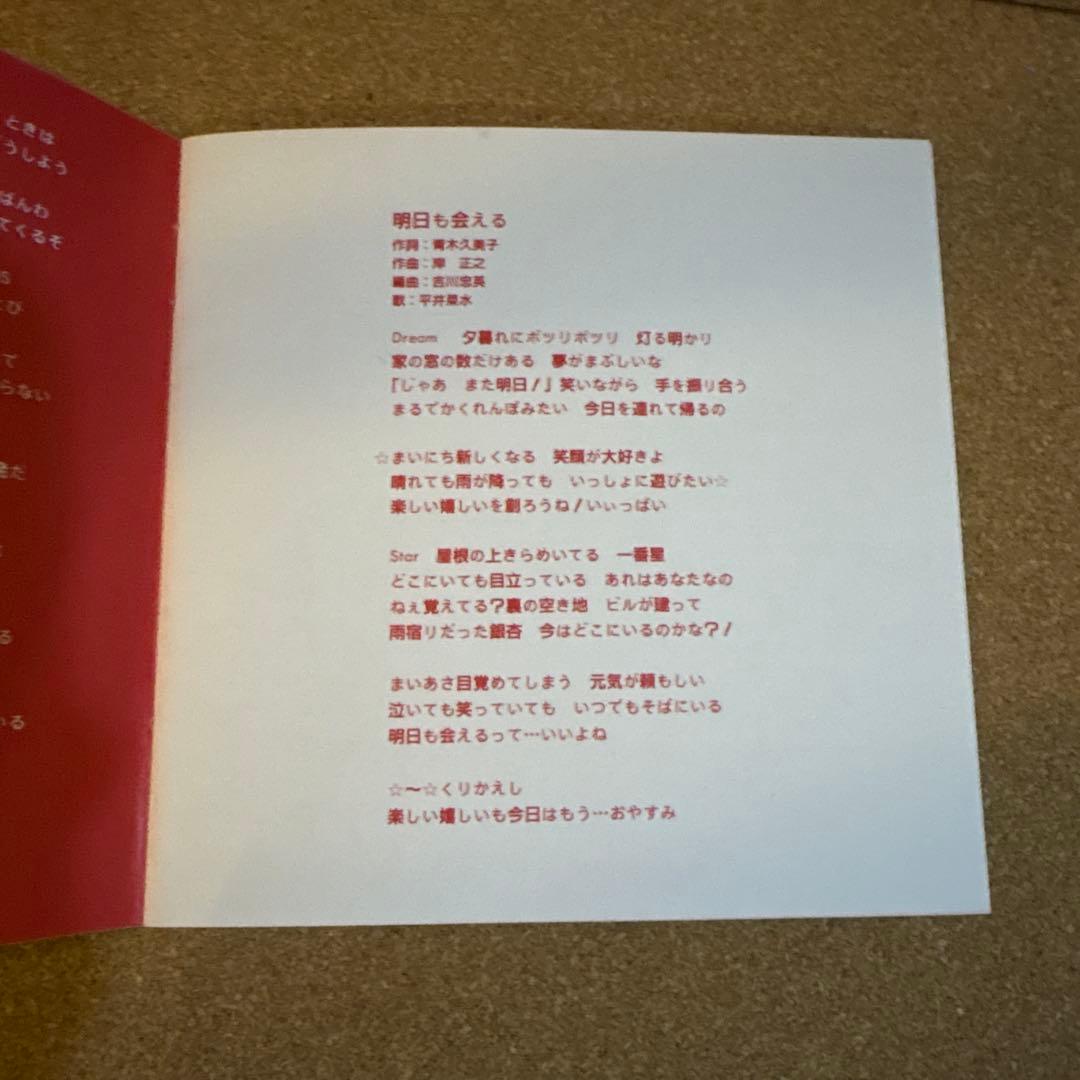 ときは
うしよう
ばんわ
てくるぞ
て
らない
明日も会える
作詞：青木久美子
作曲：岸　正之
編曲：吉川忠英
歌：平井菜水
Dream　夕暮れにポツリポツリ　灯る明かり
家の窓の数だけある　夢がまぶしいな
「じゃあ　また明日！」笑いながら　手を振り合う
まるでかくれんぼみたい　今日を連れて帰るの
☆まいにち新しくなる　笑顔が大好きよ
晴れても雨が降っても　いっしょに遊びたい☆
楽しい嬉しいを創ろうね！いぃっぱい
Star　屋根の上きらめいてる　一番星
どこにいても目立っている　あれはあなたなの
ねぇ覚えてる？裏の空き地　ビルが建って
雨宿りだった銀杏　今はどこにいるのかな？！
まいあさ目覚めてしまう　元気が頼もしい
泣いても笑っていても　いつでもそばにいる
明日も会えるって…いいよね
☆〜☆くりかえし
楽しい嬉しいも今日はもう…おやすみ